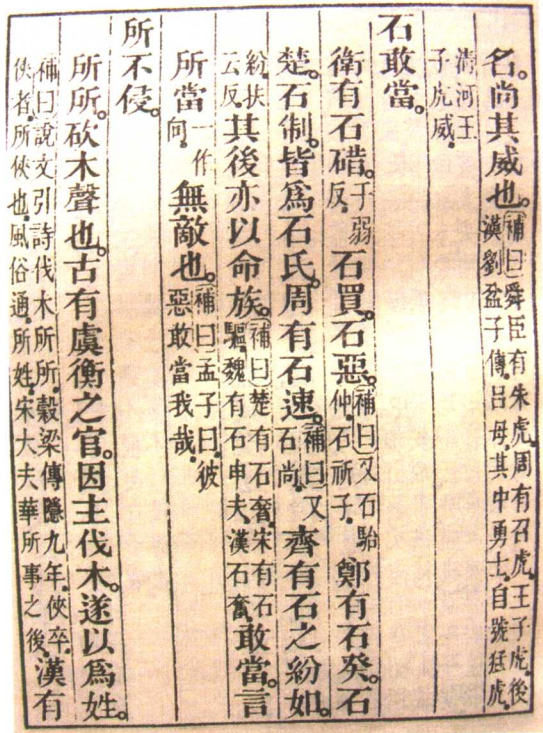 名。尚其威也。〔補曰〕舜臣有朱虎。周有召虎。王子虎。後漢劉盆子傳。呂母。其中勇士。自號猛虎。
清河王子虎威。
石敢當。
衛有石碏。于弱反。石買。石惡。〔補曰〕又石駘仲。石祈子。鄭有石癸。石
楚。石制。皆爲石氏。周有石速。〔補曰〕又石尚。齊有石之紛如。
紛扶云反其後亦以命族。〔補曰〕楚有石奢。宋有石驅。魏有石申夫。漢石奮。敢當。言
所當一作向。無敵也。〔補曰〕孟子曰。彼惡敢當我哉。
所不侵。
所所。砍木聲也。古有虞衡之官。因主伐木。遂以爲姓。
補曰〕說文引詩伐木所所。穀梁傳隱九年。俠卒。俠者。所俠也。風俗通。所姓。宋大夫華所事之後。漢有